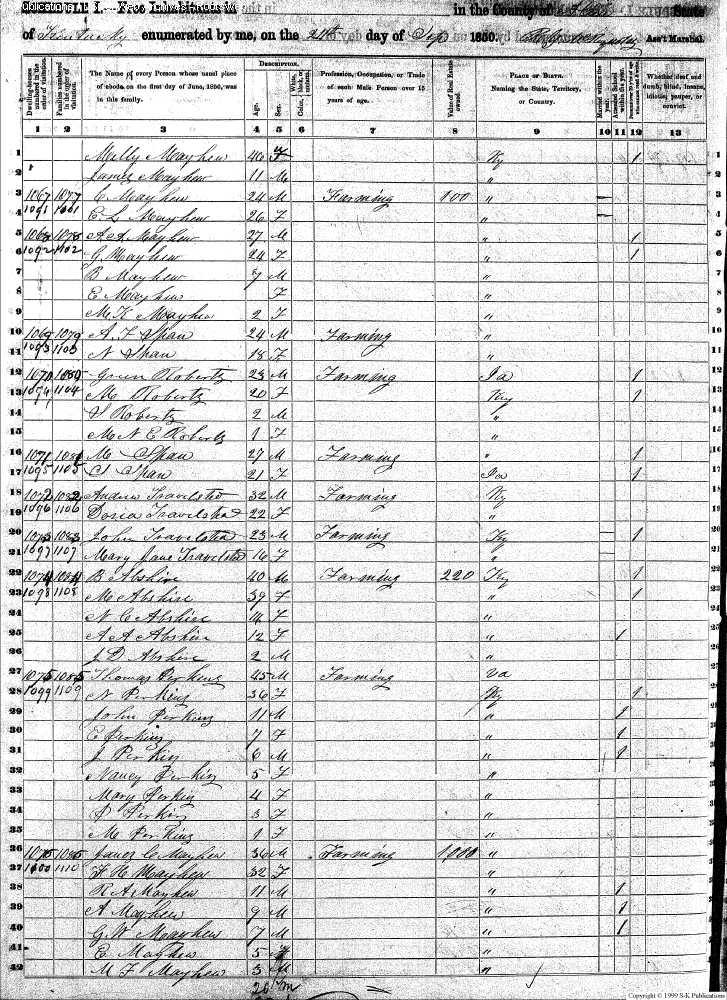 SCHEDULE I.—Free Inhabitants in in the County of State
of Kentucky enumerated by me, on the 24th day of Sep 1850. Ass't Marshal.
Dwelling-houses numbered in the order of visitation.
Families numbered in the order of visitation.
The Name of every Person whose usual place of abode on the first day of June, 1850, was in this family.
DESCRIPTION.
Age.
Sex.
White, black, or mulatto.
Color,
Profession, Occupation, or Trade of each Male Person over 15 years of age.
Value of Real Estate owned.
PLACE OF BIRTH. Naming the State, Territory, or Country.
Married within the year.
Attended School within the year.
Whether deaf and dumb, blind, insane, idiotic, pauper, or convict.
1 2 3 4 5 6 7 8 9 10 11 12 13
1 Milly Mayhew 40 F Ky 1 1
2 James Mayhew 11 M " 2
3 1067 1077 C Mayhew 24 M Farming 100 " 3
4 1091 1101 E L Mayhew 26 F " 4
5 1068 1078 A A Mayhew 27 M " 1 5
6 1092 1102 G Mayhew 24 F " 1 6
7 B Mayhew 7 M " 7
8 E Mayhew F " 8
9 M K Mayhew 2 F " 9
10 1069 1079 A. F Span 24 M Farming " 10
11 1093 1103 N Span 18 F " 11
12 1070 1080 Green Roberts 23 M Farming Ia 1 12
13 1094 1104 M Roberts 20 F Ky 1 13
14 S Roberts 2 M " 14
15 M N E Roberts 1 F " 15
16 1071 1081 M Span 27 M Farming " 1 16
17 1095 1105 S Span 21 F Ia 1 17
18 1072 1082 Andrew Travelsted 32 M Farming Ky 18
19 1096 1106 Travelsted 22 F " 19
20 1073 1083 John Travelsted 23 M Farming Ky 1 20
21 1097 1107 Mary Jane Travelsted 16 F " 21
22 1074 1084 B Abshire 40 M Farming 220 Ky 1 22
23 1098 1108 M Abshire 39 F " 1 23
24 N C Abshire 14 F " 24
25 A A Abshire 12 F " 1 25
26 J D Abshire 2 M " 26
27 1075 1085 Thomas Perkins 45 M Farming Va 27
28 1099 1109 N Perkins 36 F Ky 1 28
29 John Perkins 11 M " 1 29
30 E Perkins 7 F " 1 30
31 J Perkins 6 M " 1 31
32 Nancy Perkins 5 F " 32
33 Mary Perkins 4 F " 33
34 Perkins 3 F " 34
35 M Perkins 1 F " 35
36 1075 1085 James C Mayhew 36 M Farming 1,000 " 36
37 1100 1110 F H Mayhew 32 F " 37
38 R A Mayhew 11 M " 1 38
39 A Mayhew 9 M " 1 39
40 G W Mayhew 7 M " 1 40
41 E Mayhew 5 F " 41
42 M F Mayhew 3 M " 42
20 m
Copyright © 1999 S-K Publications